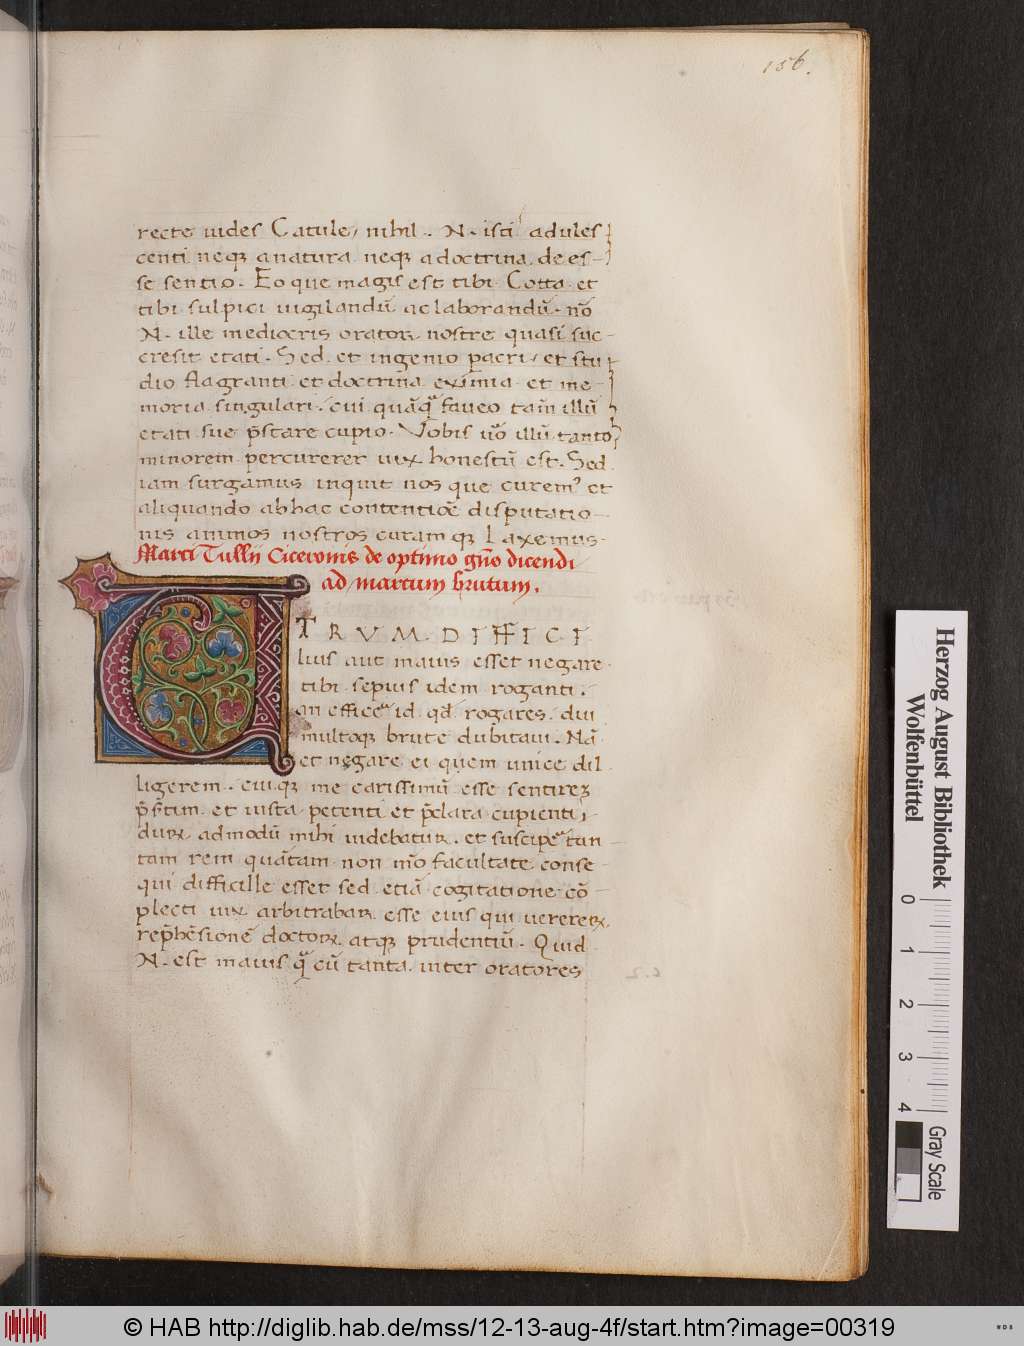 156.
recte uides Catule, nihil. N. isti adules
centi neqꝫ a natura neqꝫ a doctrina. de es-
se sentio. Eo que magis est tibi Cotta et
tibi sulpici uigilandū ac laborandū. nō
N. ille mediocris orator nostre quasi suc-
cresit etati. Sed et ingenio pacri, et stu
dio flagranti et doctrina eximia et me-
moria singulari. cui quāqᷓ faueo tam̄ illū
etati sue p̄stare cupio. Vobis u̅o illū tanto
minorem percurerer uix honestū est. Sed
iam surgamus inquit nos que curemꝰ et
aliquando ab hac contentioē disputatio-
nis animos nostros curam qꝫ Laxemus.
Marci Tullii Ciceronis de optimo gn̄o dicendi
ad marcum brutum.
UTRVM DIFFICI
lius aut maius esset negare
tibi sepius idem roganti.
an effice^r id qd̄ rogares. diu
multoqꝫ brute dubitaui. Nā
et negare ei quem unice dil
ligerem. cuiqꝫ me carissimū esse sentireꝫ
p̄s̄tim. et iusta petenti et p̄clara cupienti,
duꝝ admodū mihi uidebatuꝝ. et suscipe^r tan
tam rem quātam non m̄o facultate conse
qui difficille esset sed etiā cogitatione cō-
plecti uix arbitrabaꝝ esse eius qui uerereꝝ
rep̄hēsionē doctoꝝ atqꝫ prudentiū. Quid
N. est maius qᷓ cū tanta inter oratores
Herzog August Bibliothek
Wolfenbüttel
0 1 2 3 4
Gray Scale
© HAB http://diglib.hab.de/mss/12-13-aug-4f/start.htm?image=00319